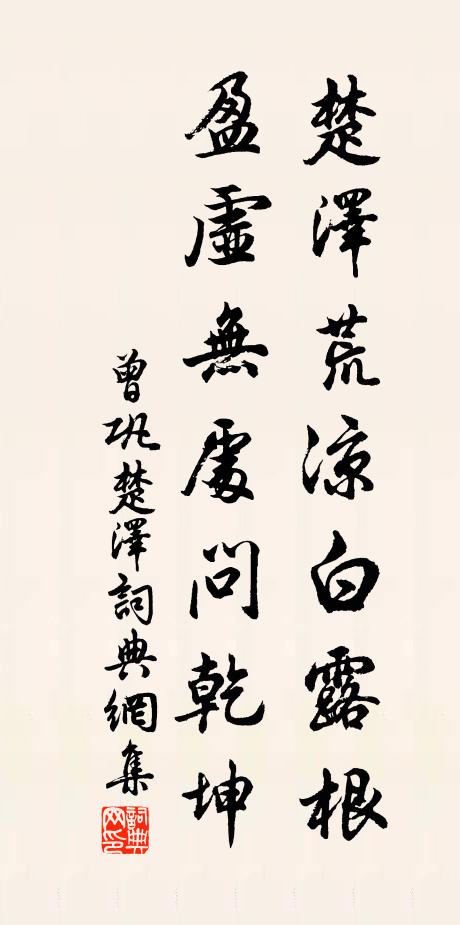 楚澤荒涼白露根
盈虛無處問乾坤
曾巩楚澤詞典網集
詞典网印